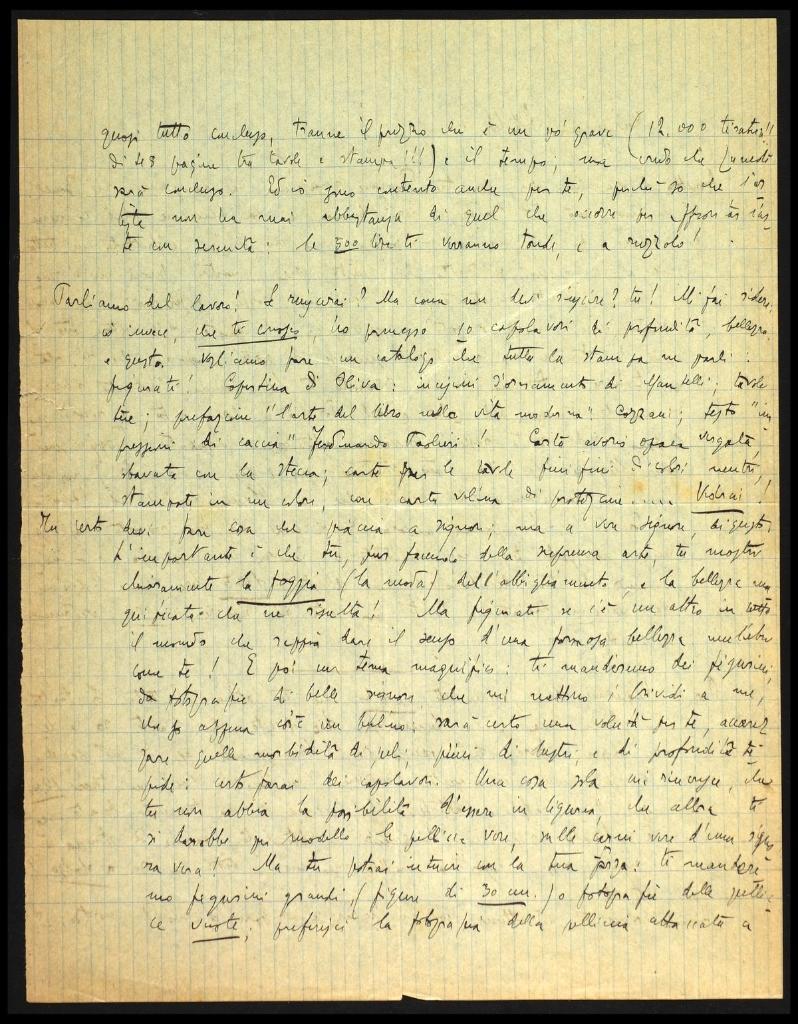 quasi tutto concluso, tranne il prezzo che è un pò grave (12.000 tiratura!!
di 48 pagine tra tavole e stampa!!!) e il tempo; ma credo che Lunedì
sarà concluso. Ed io sono contento anche per te, perchè so che l'ar
tista non ha mai abbastanza di quel che occorre per
te con serenità: le 500 lire ti verranno tonde, e a ruzzolo!
Parliamo del lavoro! Ma come non devi riuscire? tu! Mi fai ridere,
io invece, che ti conosco, ho promesso 10 capolavori di profondità, bellezza
e gusto. Vogliamo fare un catalogo che tutta la stampa ne parli:
figurati! Copertina di Oliva: incisioni d'ornamento di Mantelli; tavole
tue; prefazione "l'arte del libro nella vita moderna" Cozzani; testo "im
pressioni di caccia" Ferdinando Paolieri! Carta avorio opaca vergata,
con la stecca; carte per le tavole fini fini di colori neutri,
stampate in un colore, con carta velina di protezione .... Vedrai!
Tu certo devi fare cosa che piaccia a signore; ma a vere signore, di gusto.
L'importante è che tu, pur facendo della suprema arte, tu mostri
chiaramente la foggia (la moda) dell'abbigliamento, e la bellezza
che ne risulta! Ma figurati se c'è un altro in tutto
il mondo che sappia dare il senso d'una formosa bellezza muliebre
come te! E poi un tema magnifico: ti manderemo dei figurini,
da fotografie di belle signore che mi mettono i brividi a me,
che so appena cos'è un bulino: sarà certo una voluttà per te, accarez
zare quella morbidità di peli, piena di lustri, e di profondità te
pide: certo farai dei capolavori. Una cosa sola mi rincresce, che
tu non abbia la possibilità d'essere in Liguria, che allora ti
si darebbe per modello la pelliccia vera, sulle carni vere d'una signo
ra vera! Ma tu potrai intuire con la tua forza: ti mandere
mo figurini grandi, (figure di 30 cm.) o fotografie delle pellic
ce vuote; preferisci la fotografia della pelliccia attaccata a